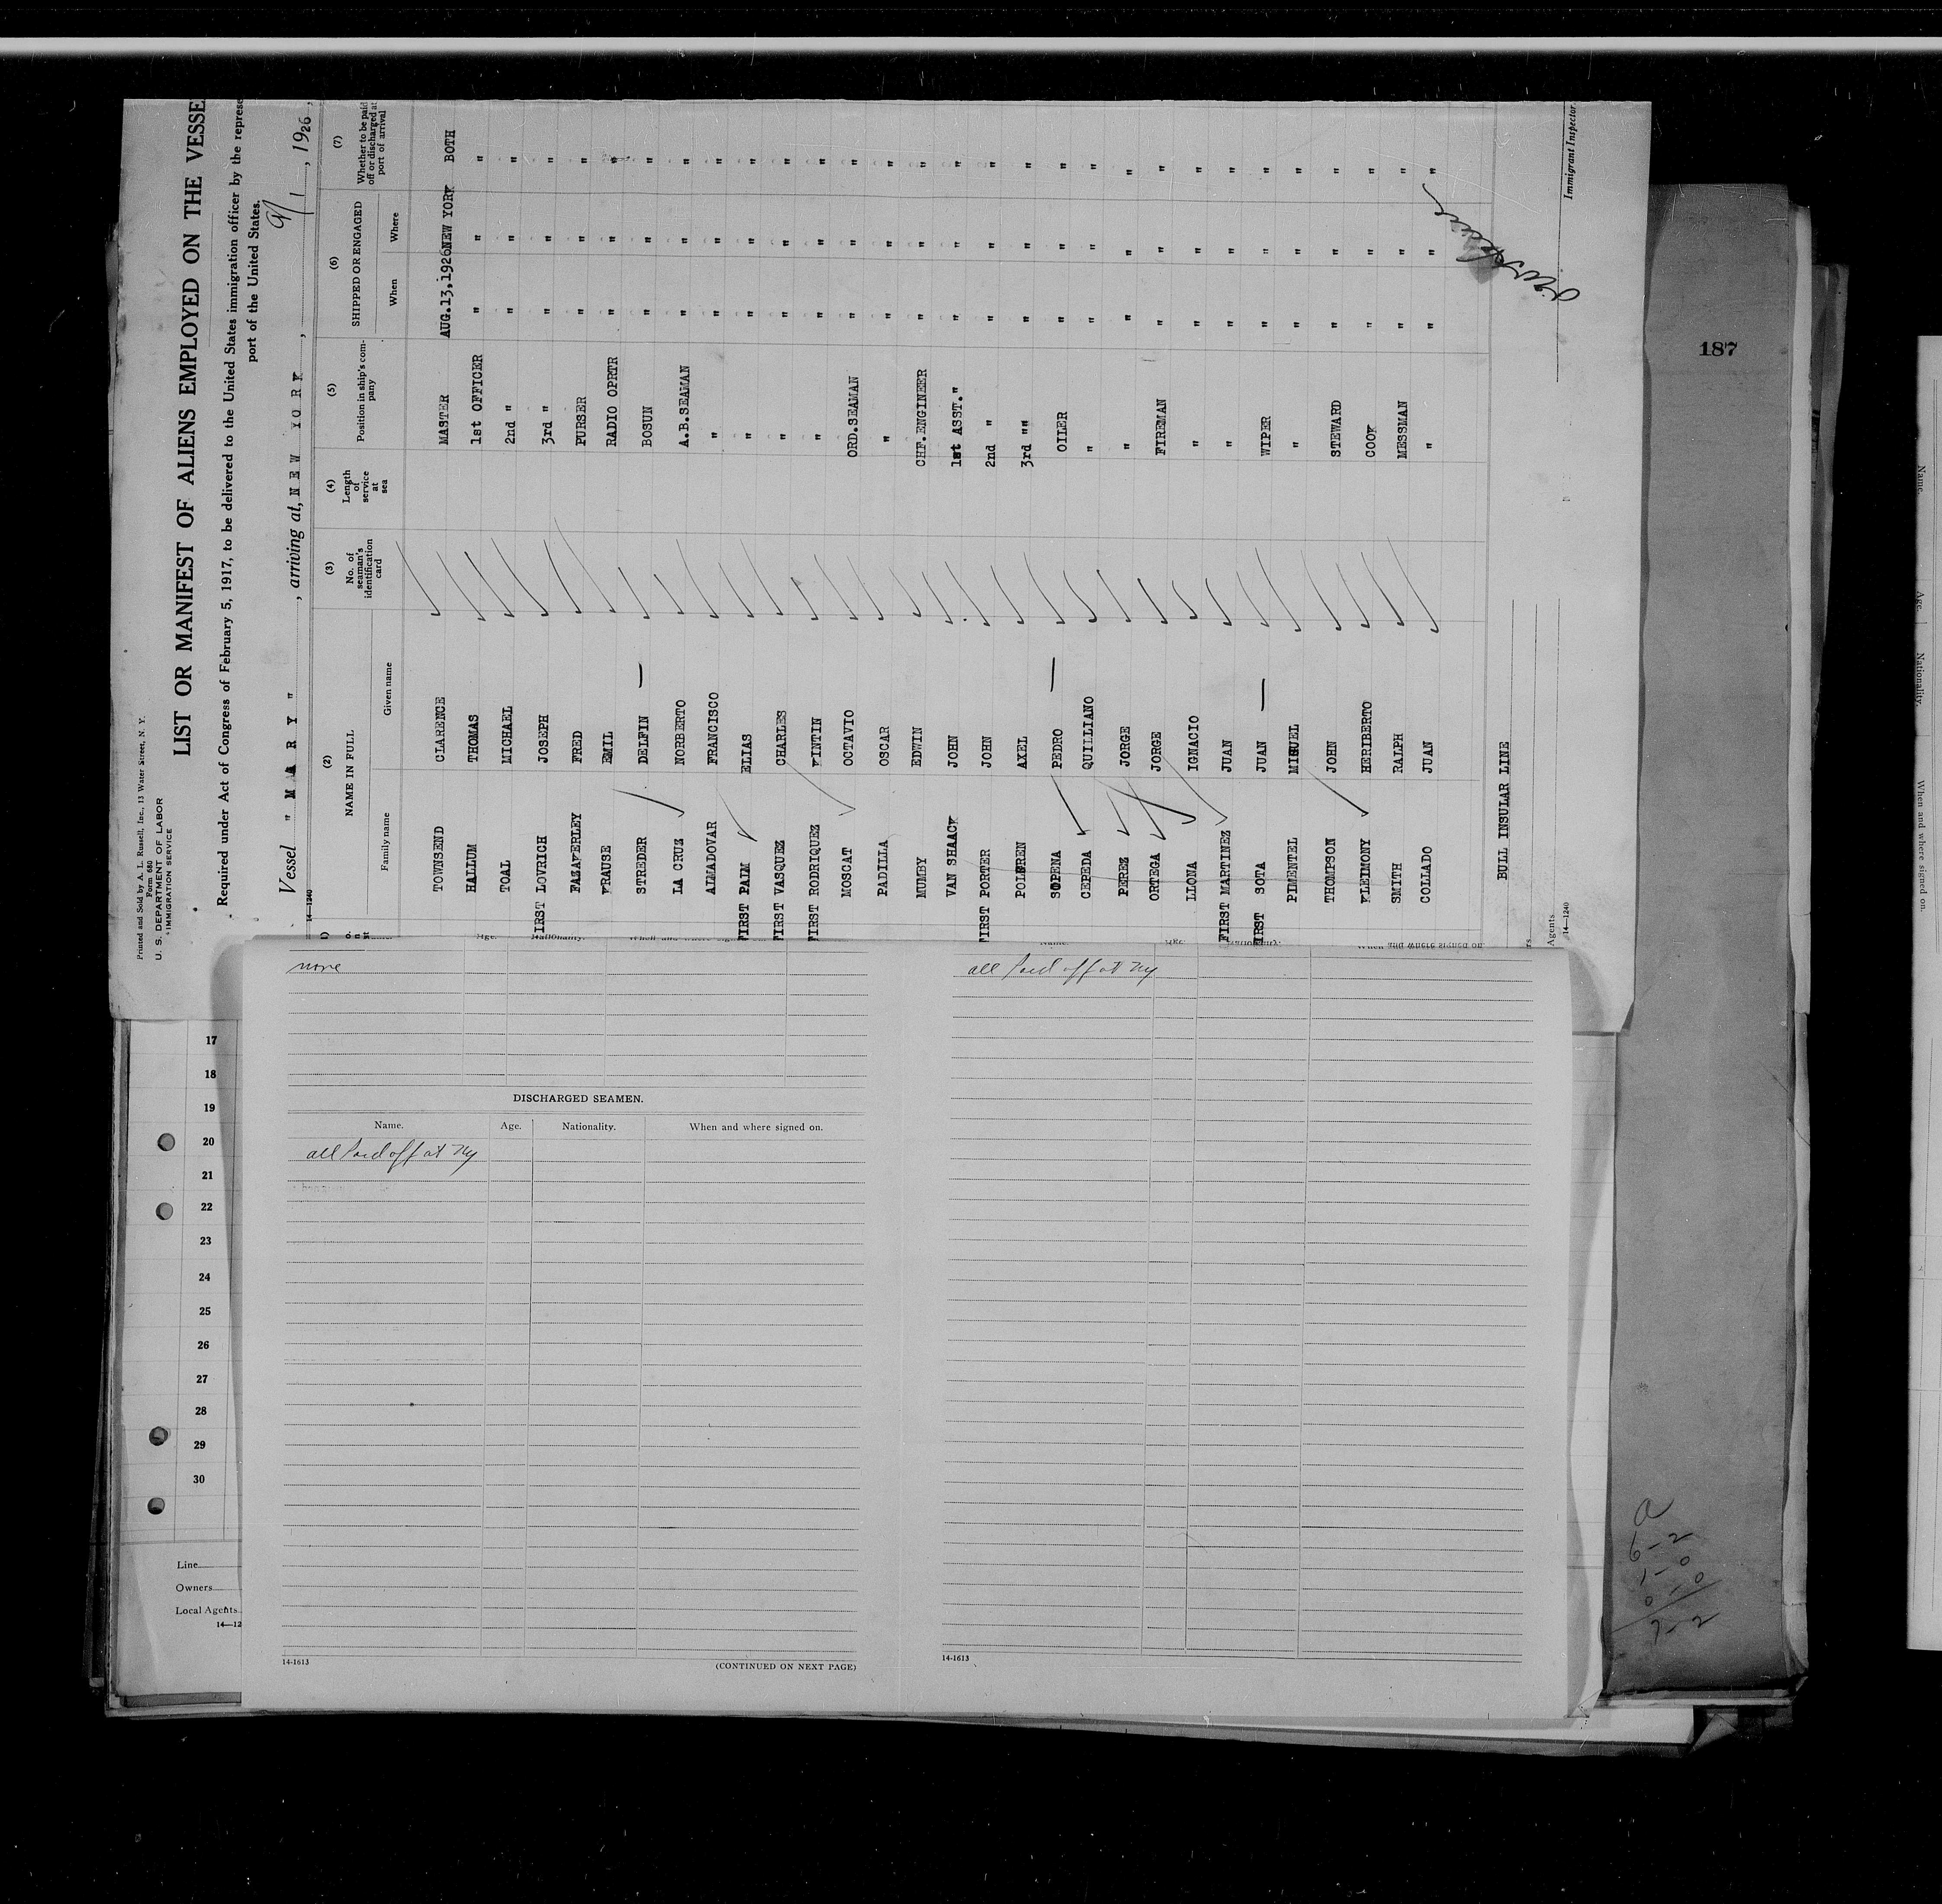 Printed and Sold by A. L. Russell, Inc., 13 Water Street, N. Y.
Form 680
U. S. DEPARTMENT OF LABOR
IMMIGRATION SERVICE
LIST OR MANIFEST OF ALIENS EMPLOYED ON THE VESSE
Required under Act of Congress of February 5, 1917, to be delivered to the United States immigration officer by the represe
port of the United States.
Vessel " M A R Y " , arriving at, N E W Y O R K , 9/1 , 1926,
14—1240
(2) (3) (4) (5) (6) (7)
NAME IN FULL
Family name Given name
No. of seaman's identification card
Length of service at sea
Position in ship's company
SHIPPED OR ENGAGED
When Where
Whether to be paid off or discharged at port of arrival
TOWNSEND CLARENCE MASTER AUG.13,1926 NEW YORK BOTH
HALLUM THOMAS 1st OFFICER " " "
TOAL MICHAEL 2nd " " " "
FIRST LOVRICH JOSEPH 3rd " " " "
FAZAKERLEY FRED PURSER " " "
KRAUSE EMIL RADIO OPRTR " " "
STREDER DELFIN — BOSUN " " "
LA CRUZ NORBERTO A.B.SEAMAN " " "
ALMADOVAR FRANCISCO " " " "
FIRST PALM ELIAS " " " "
FIRST VASQUEZ CHARLES " " " "
FIRST RODRIQUEZ KINTIN " " " "
MOSCAT OCTAVIO ORD.SEAMAN " " "
PADILLA OSCAR " " " "
MUMBY EDWIN CHF.ENGINEER " " "
VAN SHAACK JOHN 1st ASST." " " "
FIRST PORTER JOHN 2nd " " " "
AXEL 3rd "" " " "
SOPENA PEDRO — OILER " " "
CEPEDA QUILLIANO " " " "
PEREZ JORGE " " " "
ORTEGA JORGE FIREMAN " " "
LLONA IGNACIO " " " "
FIRST MARTINEZ JUAN " " " "
FIRST SOTA JUAN — WIPER " " "
PIMENTEL MIGUEL " " " "
THOMPSON JOHN STEWARD " " "
KLEIMONY HERIBERTO COOK " " "
SMITH RALPH MESSMAN " " "
COLLADO JUAN " " " "
BULL INSULAR LINE
Immigrant Inspector
Agents
14—1240
187
none
DISCHARGED SEAMEN.
Name. Age. Nationality. When and where signed on.
all paid off at Ny
14-1613
(CONTINUED ON NEXT PAGE)
Name. Age. Nationality. When and where signed on.
all paid off at Ny
14-1613
17
18
19
20
21
22
23
24
25
26
27
28
29
30
Line
Owners
Local Agents
14—12
a
6-2
1-0
0-0
7-2
Name. Age. Nationality. When and where signed on.